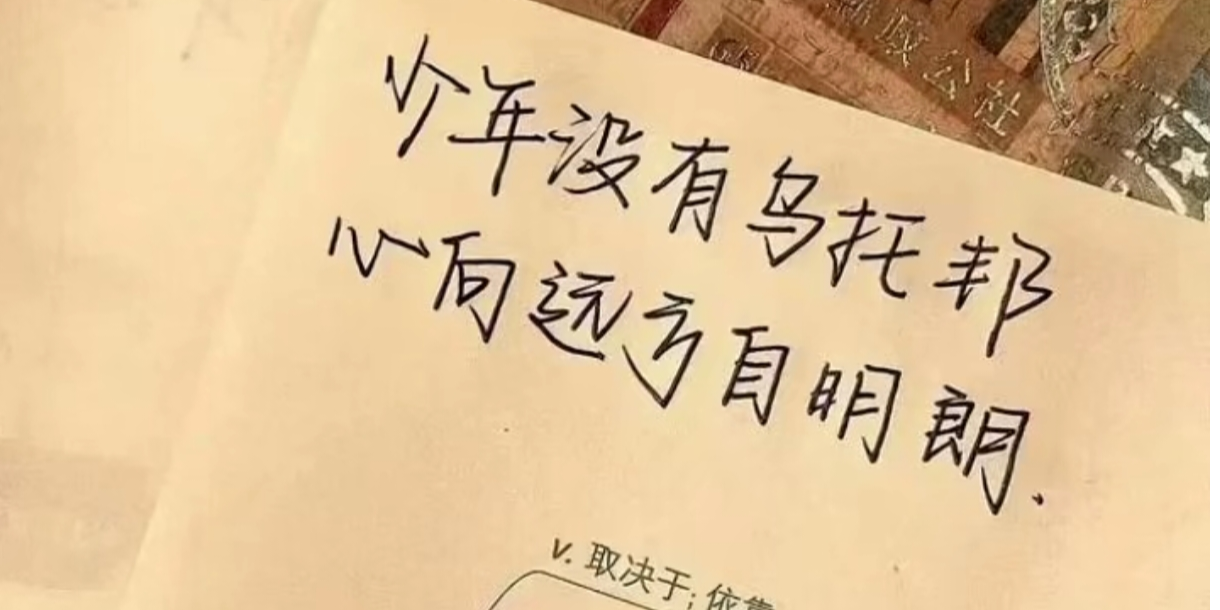 公社
少年没有乌托邦
心向远方自明朗.
v. 取决于; 依靠